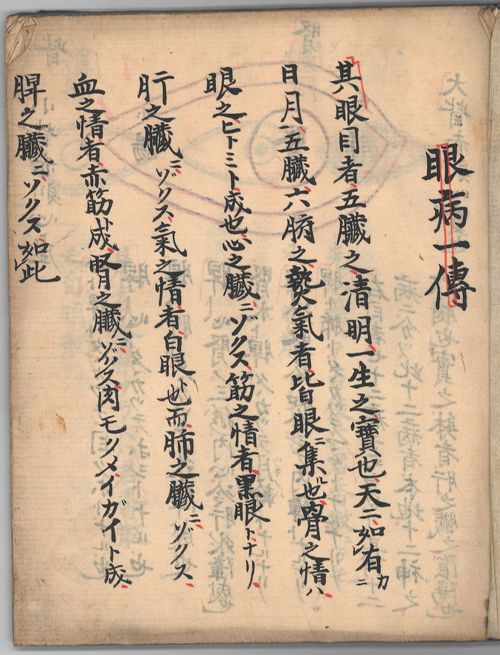 眼病一傳
其眼目者五臓之清明一生之寳也天ニ如有カ
日月五臓六腑之熱氣者皆眼ニ集也骨之情ハ
眼之ヒトミト成也心之臓ニゾクス筋之情者黒眼トナリ
肝之臓ニゾクス氣之情者白眼ト也而肺之臓ニゾクス
血之情者赤筋ト成腎之臓ニゾクス肉モツメイガイト成
脾之臓ニゾクス如此